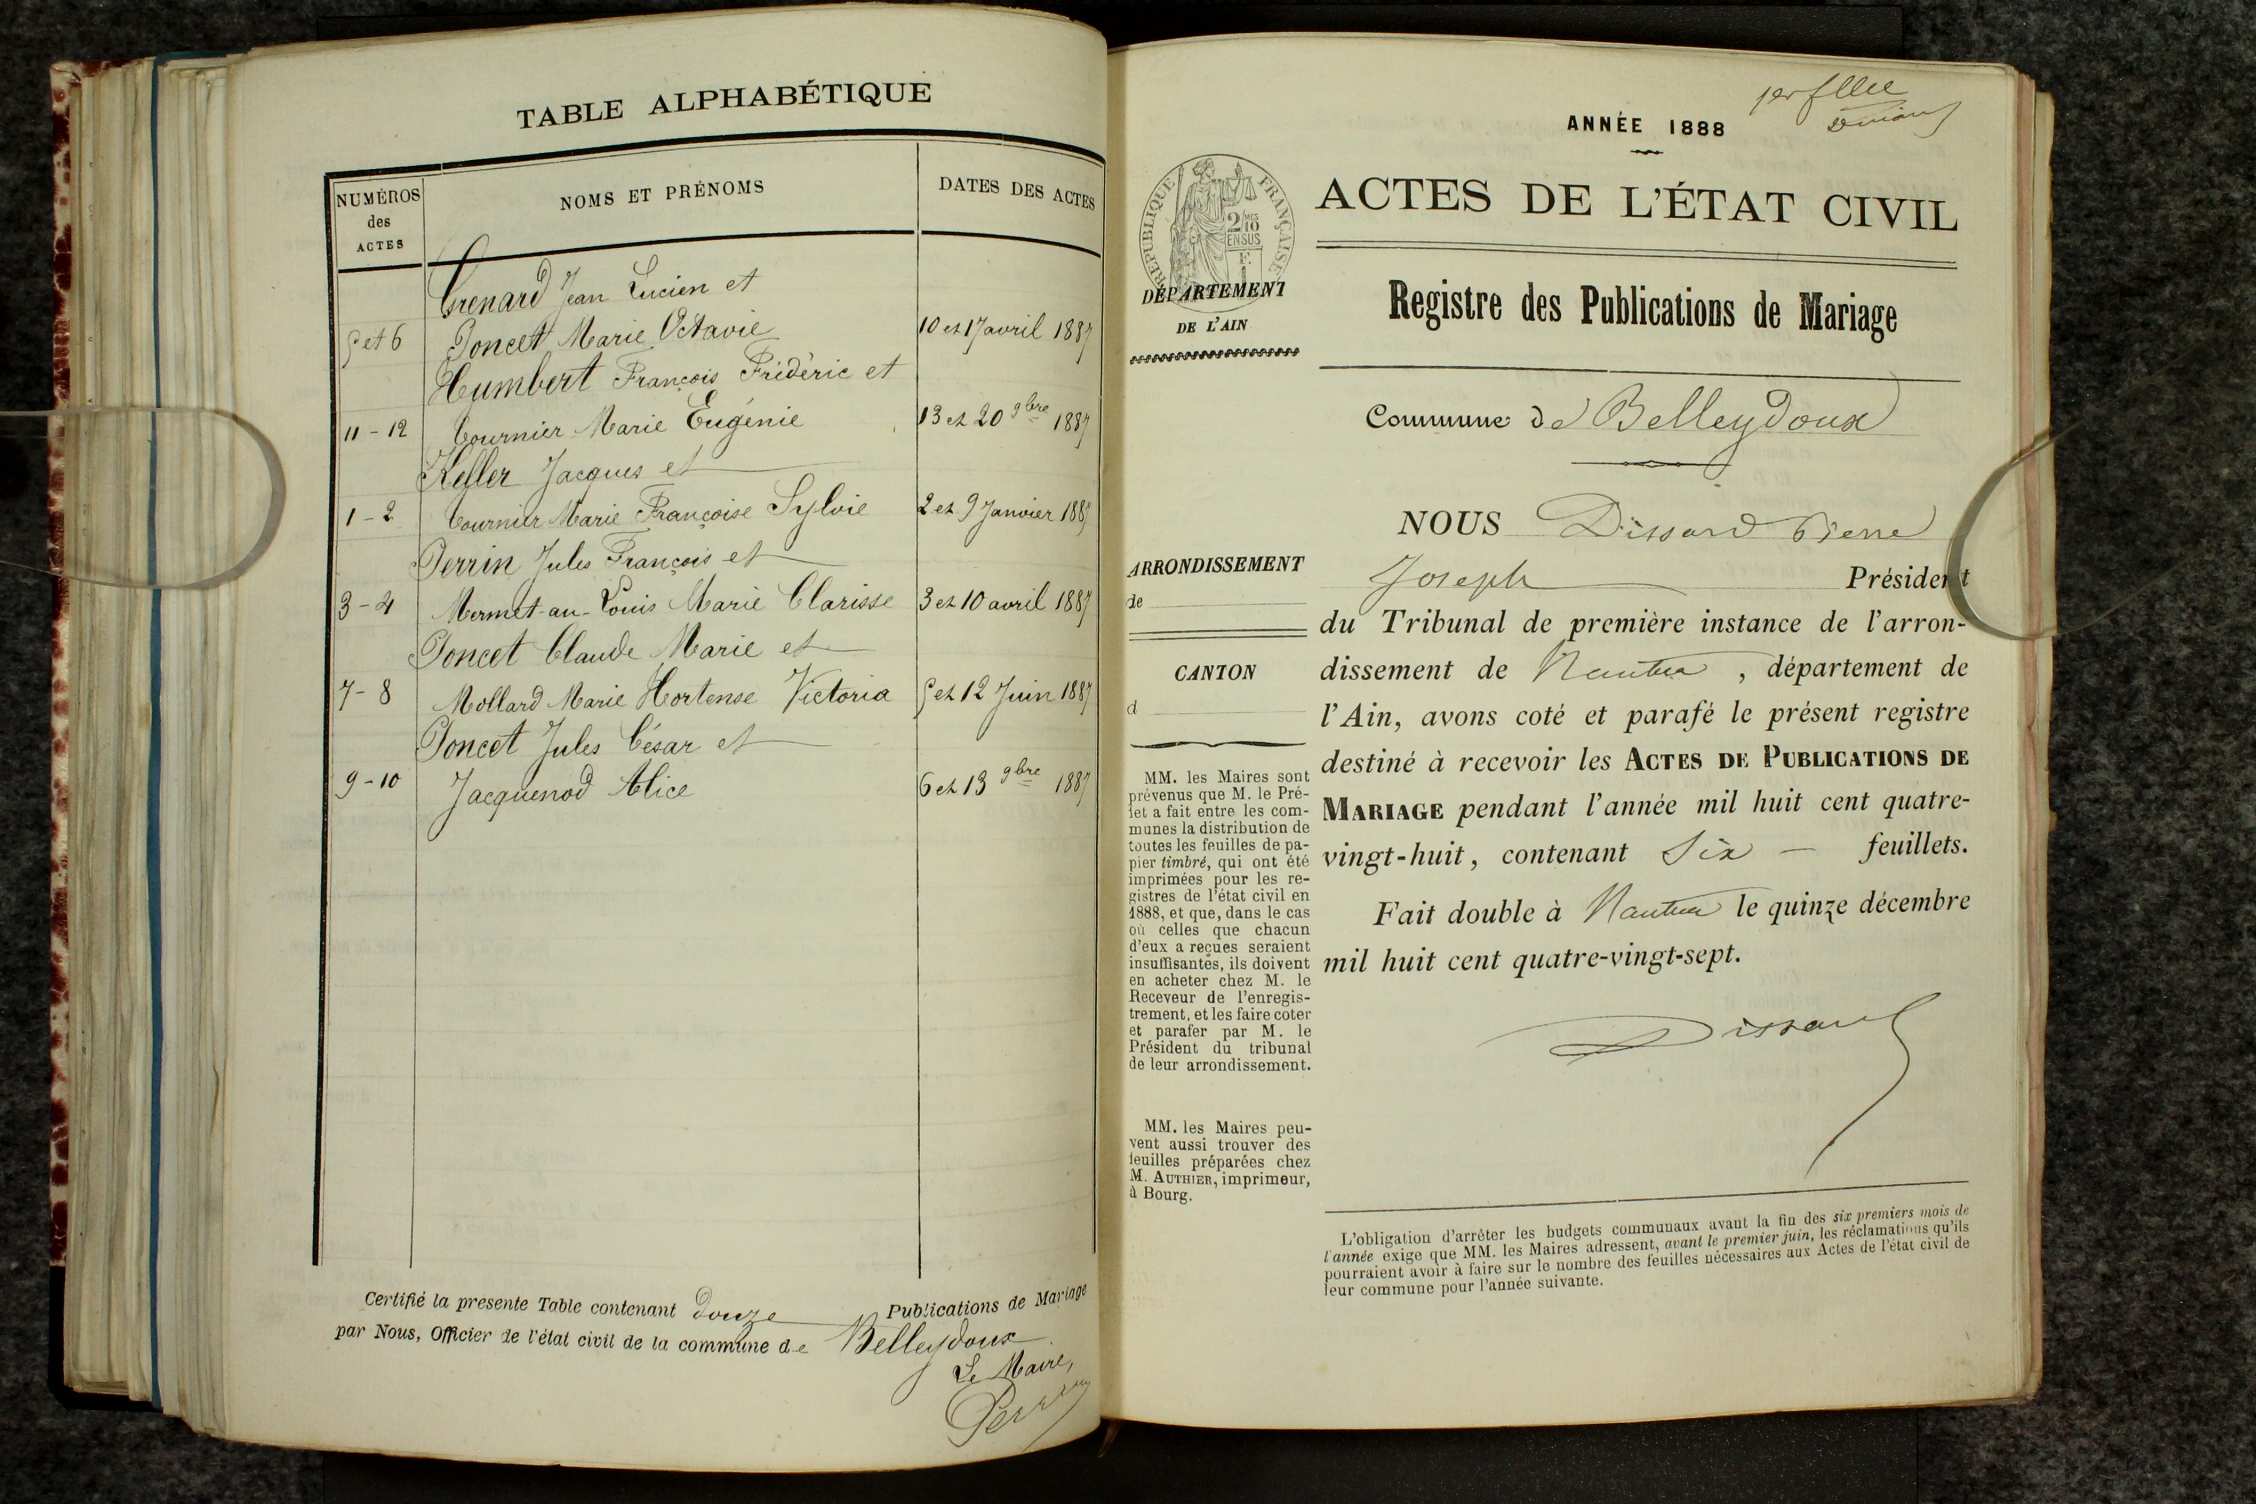 TABLE ALPHABÉTIQUE
NUMÉROS
des
ACTES
NOMS ET PRÉNOMS
DATES DES ACTES
Grenard Jean Lucien et
5 et 6 Poncet Marie Octavie 10 et 17 avril 1887
Humbert François Frédéric et
11 - 12 Tournier Marie Eugénie 13 et 20 9bre 1887
Keller Jacques et
1 - 2 Tournier Marie Françoise Sylvie 2 et 9 Janvier 1887
Perrin Jules François et
3 - 4 Mermet-au-Louis Marie Clarisse 3 et 10 avril 1887
Poncet Claude Marie et
7 - 8 Mollard Marie Hortense Victoria 5 et 12 Juin 1887
Poncet Jules César et
9 - 10 Jacquenod Alice 6 et 13 9bre 1887
Certifié la presente Table contenant douze Publications de Mariage
par Nous, Officier de l'état civil de la commune de Belleydoux
Le Maire,
Perrin
ANNÉE 1888
RÉPUBLIQUE FRANÇAISE
2/10
EN SUS
DÉPARTEMENT
DE L'AIN
ACTES DE L'ÉTAT CIVIL
Registre des Publications de Mariage
Commune de Belleydoux
ARRONDISSEMENT
de
CANTON
d
MM. les Maires sont
prévenus que M. le Pré-
fet a fait entre les com-
munes la distribution de
toutes les feuilles de pa-
pier timbré, qui ont été
imprimées pour les re-
gistres de l'état civil en
1888, et que, dans le cas
où celles que chacun
d'eux a reçues seraient
insuffisantes, ils doivent
en acheter chez M. le
Receveur de l'enregis-
trement, et les faire coter
et parafer par M. le
Président du tribunal
de leur arrondissement.
MM. les Maires peu-
vent aussi trouver des
feuilles préparées chez
M. AUTHIER, imprimeur,
à Bourg.
NOUS Dissard Pierre
Joseph Président
du Tribunal de première instance de l'arron-
dissement de Nantua, département de
l'Ain, avons coté et parafé le présent registre
destiné à recevoir les ACTES DE PUBLICATIONS DE
MARIAGE pendant l'année mil huit cent quatre-
vingt-huit, contenant Six — feuillets.
Fait double à Nantua le quinze décembre
mil huit cent quatre-vingt-sept.
Dissard
L'obligation d'arrêter les budgets communaux avant la fin des six premiers mois de
l'année exige que MM. les Maires adressent, avant le premier juin, les réclamations qu'ils
pourraient avoir à faire sur le nombre des feuilles nécessaires aux Actes de l'état civil de
leur commune pour l'année suivante.